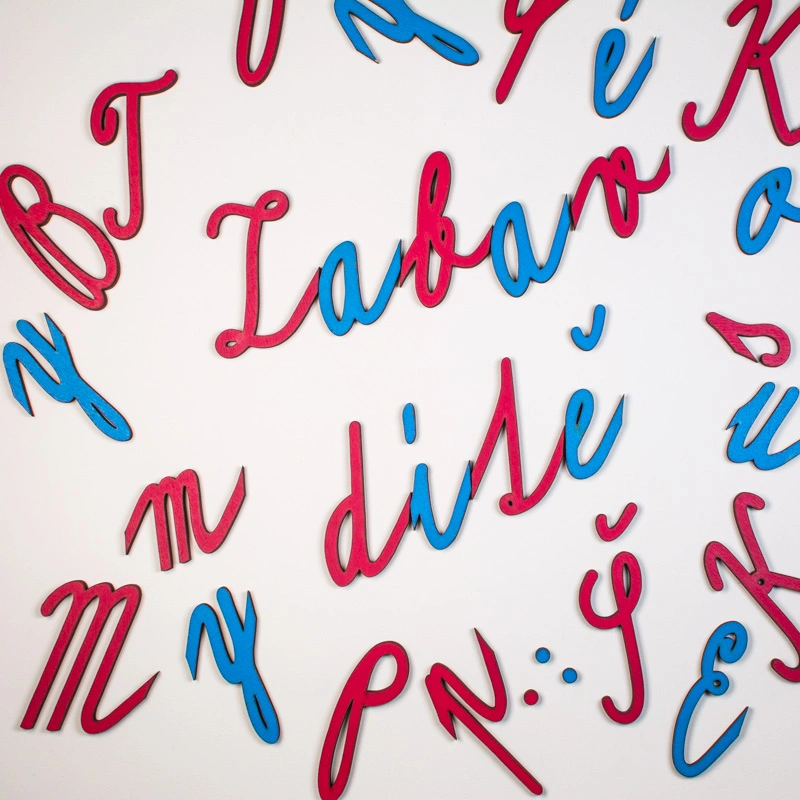 y
é
K
B
T
Zabav
o
y
s
dítě
u
m
K
M
y
P
N
Š
E